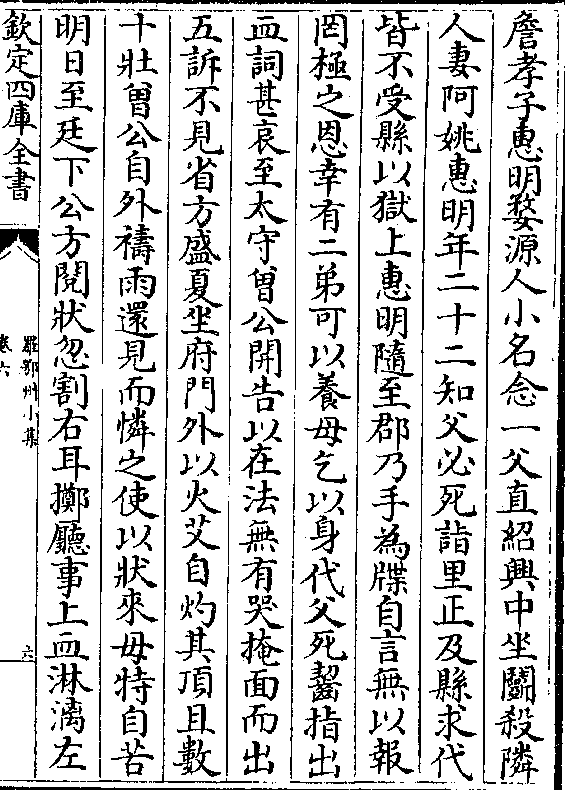 詹孝子惠明婺源人小名念一父直紹興中坐鬬殺隣
人妻阿姚惠明年二十二知父必死詣里正及縣求代
皆不受縣以獄上惠明隨至郡乃手為牒自言無以報
罔極之恩幸有二弟可以養母乞以身代父死齧指出
血詞甚哀至太守曽公開告以在法無有哭掩面而出
五訴不見省方盛夏坐府門外以火艾自灼其頂且數
十壯曽公自外禱雨還見而憐之使以狀來毋特自苦
明日至廷下公方閱狀忽割右耳擲廳事上血淋漓左
欽定四庫全書
羅鄂州小集
卷六
六